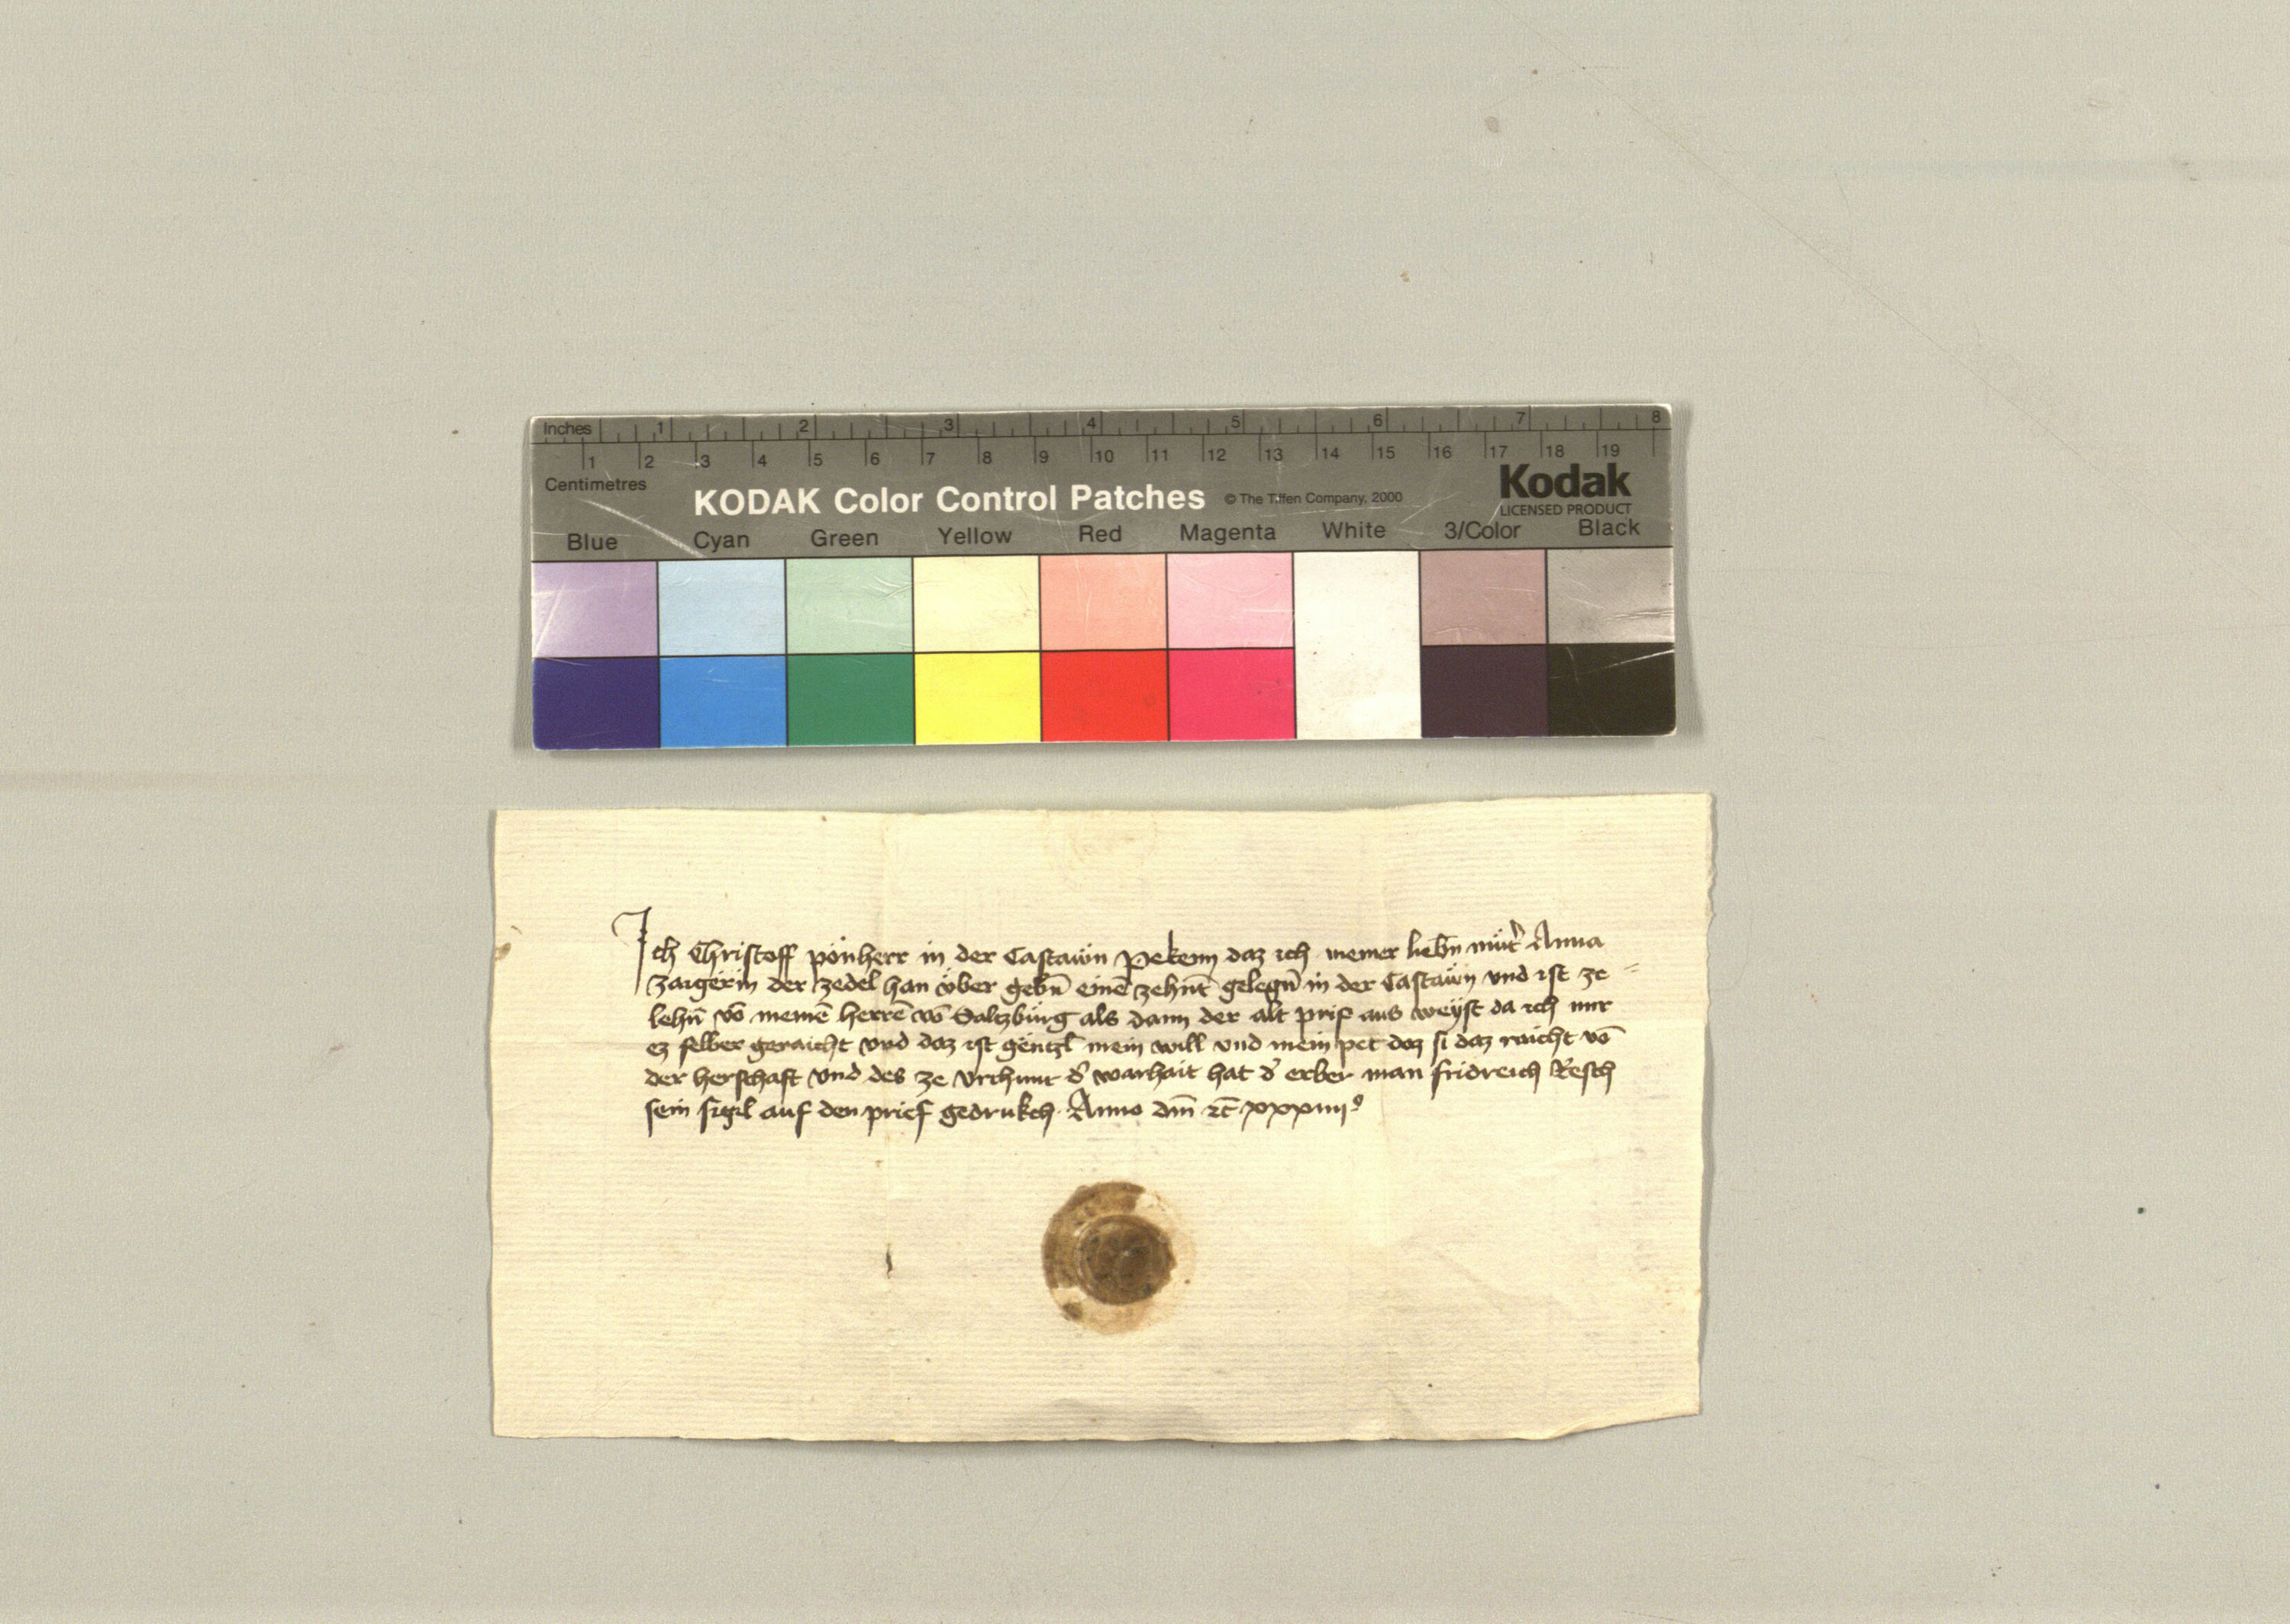 Inches 1 2 3 4 5 6 7 8
1 2 3 4 5 6 7 8 9 10 11 12 13 14 15 16 17 18 19
Centimetres
KODAK Color Control Patches © The Tiffen Company, 2000 Kodak
LICENSED PRODUCT
Blue Cyan Green Yellow Red Magenta White 3/Color Black
Ich Christoff pönherr in der Castawn Pekenn daz ich meiner liebn̄ mut̉ Anna
Zaigerin der zedel han vber gebn̄ einē zehnt gelegn̄ in der Castawn vnd ist ze
lehn̄ vō meinē herrē vō Saltzburg als dann der alt prif aus weyst da ich mir
ez selber geraicht vnd daz ist gentzl mein will vnd mein pet daz si daz raicht vō
der herschaft vnd des ze vrchunt d̉ warhait hat d̉ erber man fridreich Resch
sein sigel auf den prief gedrukch Anno dm̄ xxxiiij⁹